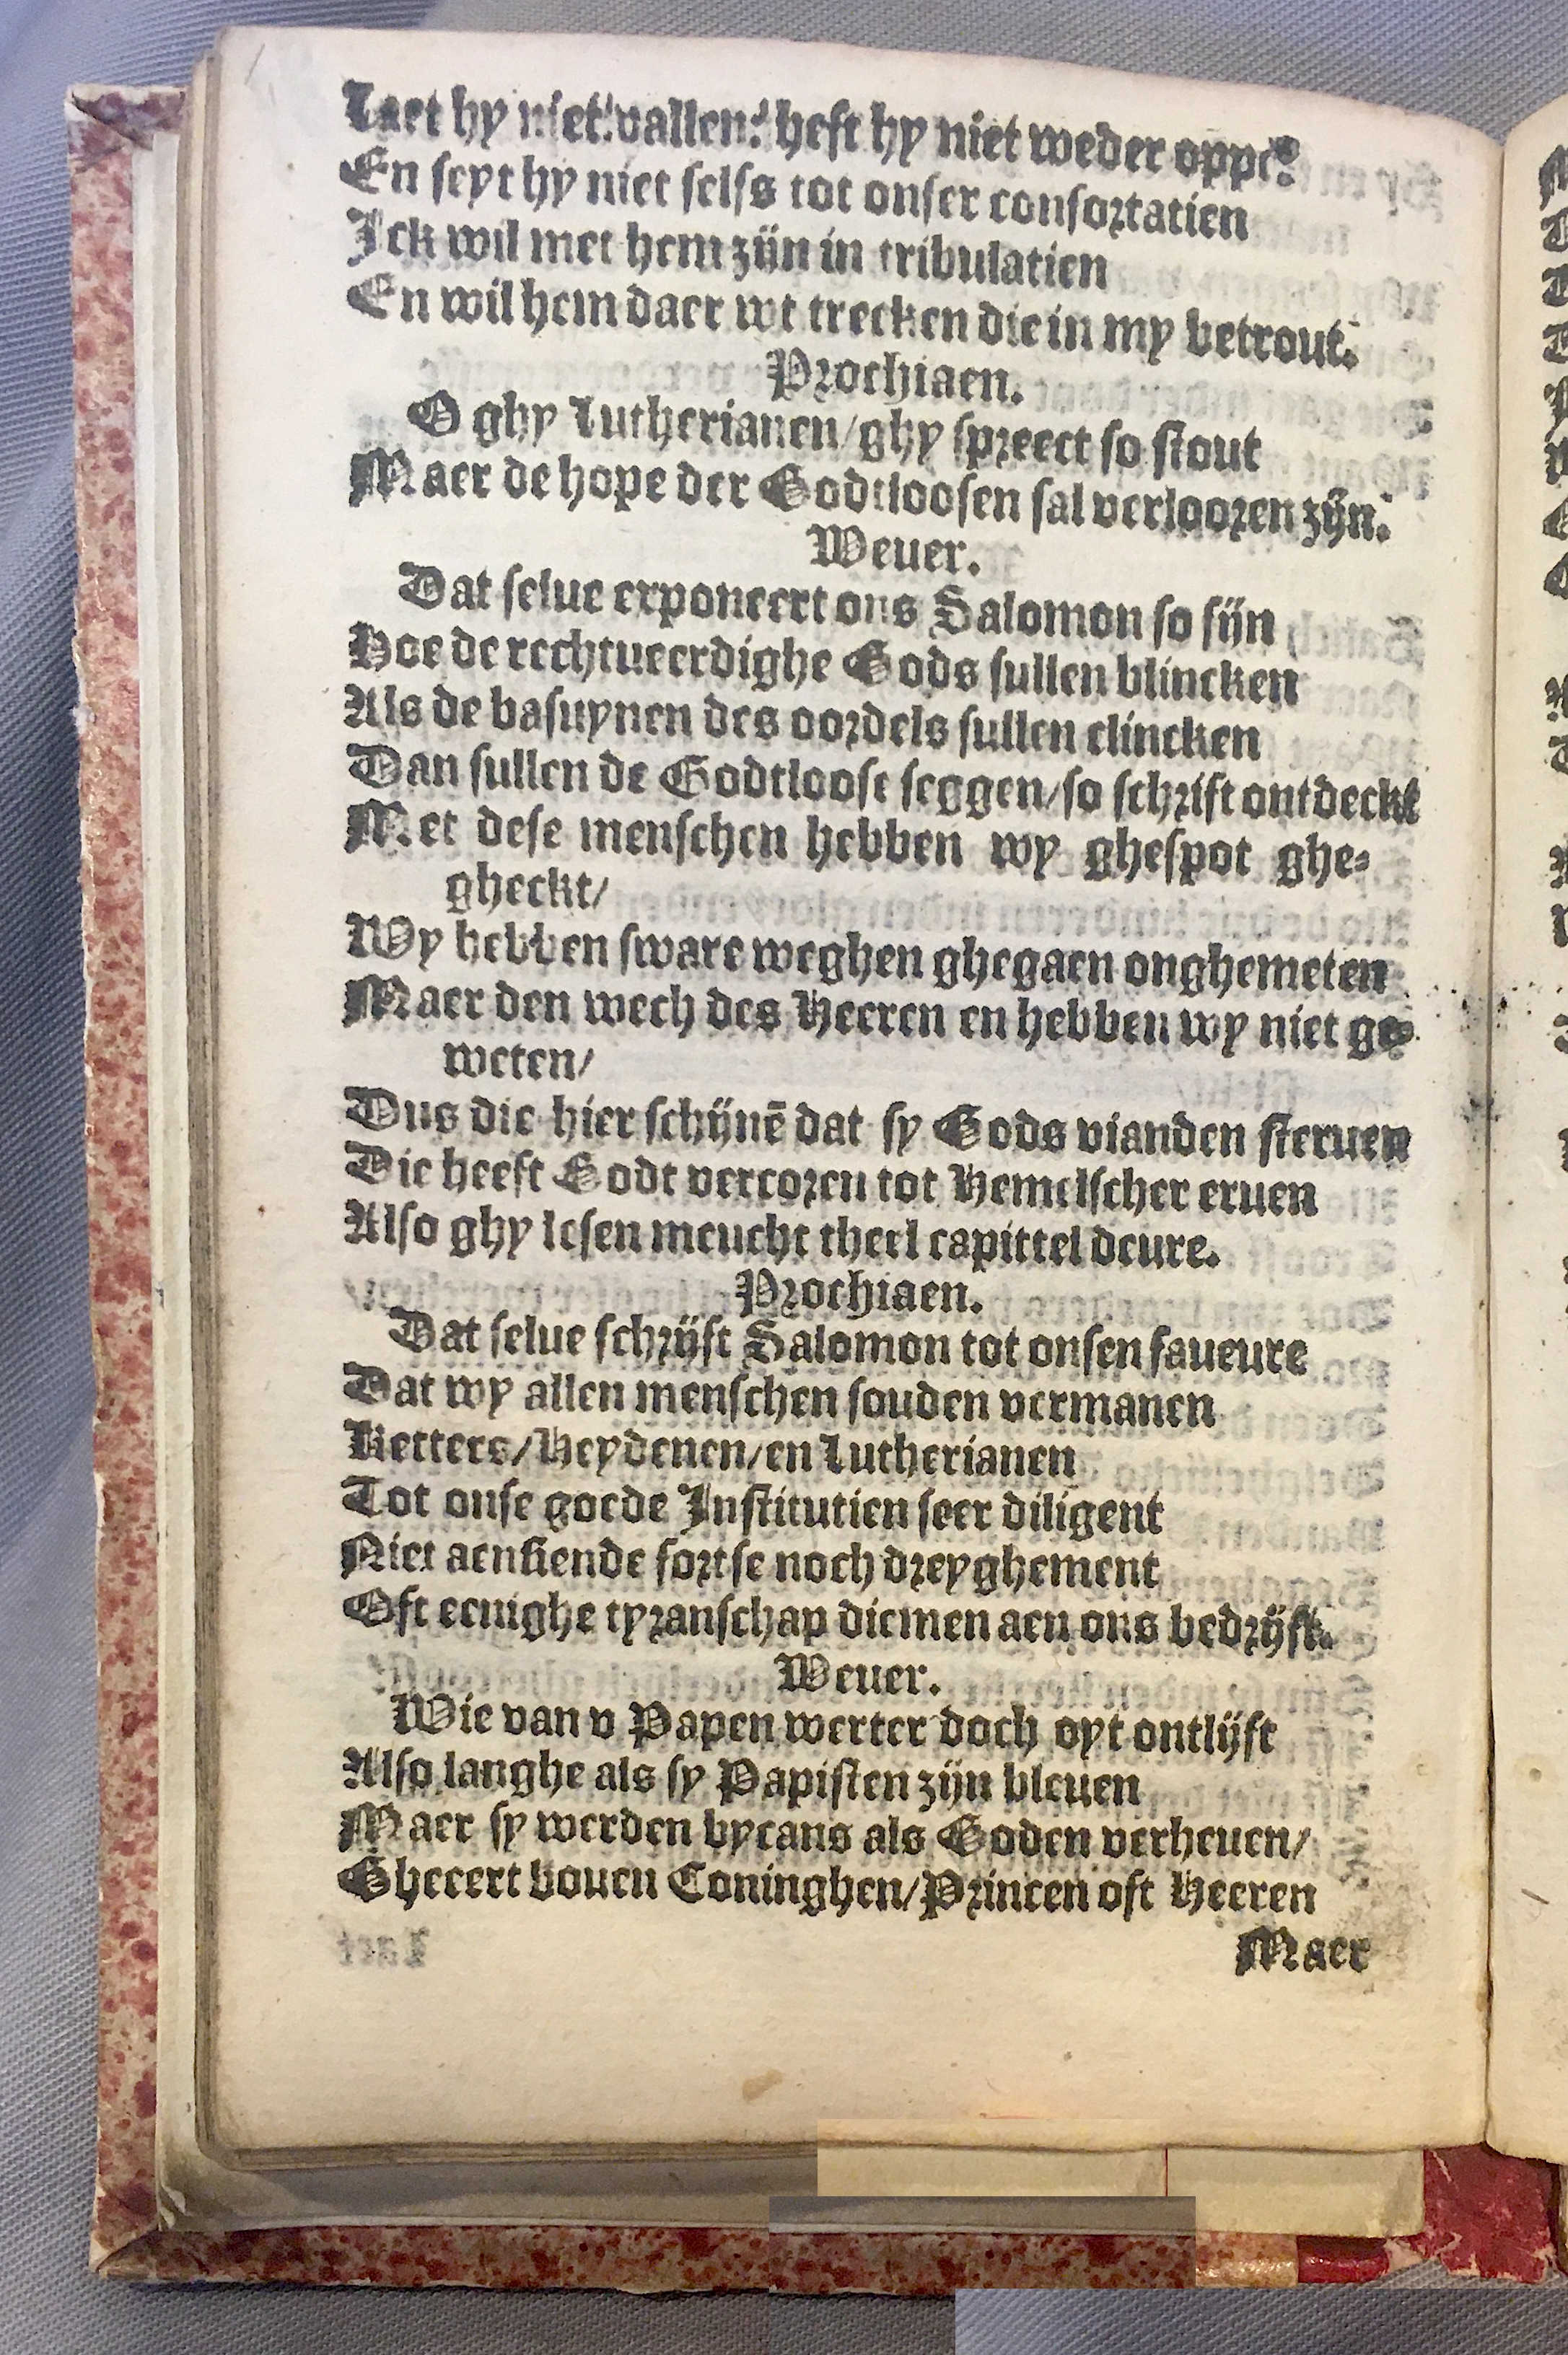 Laet hy niet vallen? heft hy niet weder oppe?
En seyt hy niet selfs tot onser consortatien
Ick wil met hem zijn in tribulatien
En wil hem daer wt trecken die in my betrout.
Prochiaen.
O ghy Lutherianen/ghy spreect so stout
Maer de hope der Godtloosen sal verlooren zijn.
Weuer.
Dat selue exponeert ons Salomon so fijn
Hoe de rechtueerdighe Gods sullen blincken
Als de basuynen des oordels sullen clincken
Dan sullen de Godtloose seggen/so schrift ontdeckt
Met dese menschen hebben wy ghespot ghe-
gheckt/
Wy hebben sware weghen ghegaen onghemeten
Maer den wech des Heeren en hebben wy niet ge-
weten/
Dus die hier schijnē dat sy Gods vianden steruen
Die heeft Godt vercoren tot Hemelscher eruen
Also ghy lesen meucht theel capittel deure.
Prochiaen.
Dat selue schrijft Salomon tot onsen faueure
Dat wy allen menschen souden vermanen
Ketters/Heydenen/en Lutherianen
Tot onse goede Institutien seer diligent
Niet aensiende fortse noch dreyghement
Oft eenighe tyranschap diemen aen ons bedrijft.
Weuer.
Wie van v Papen werter doch oyt ontlijft
Also langhe als sy Papisten zijn bleuen
Maer sy werden bycans als Goden verheuen/
Gheeert bouen Coninghen/Princen oft Heeren
Maer